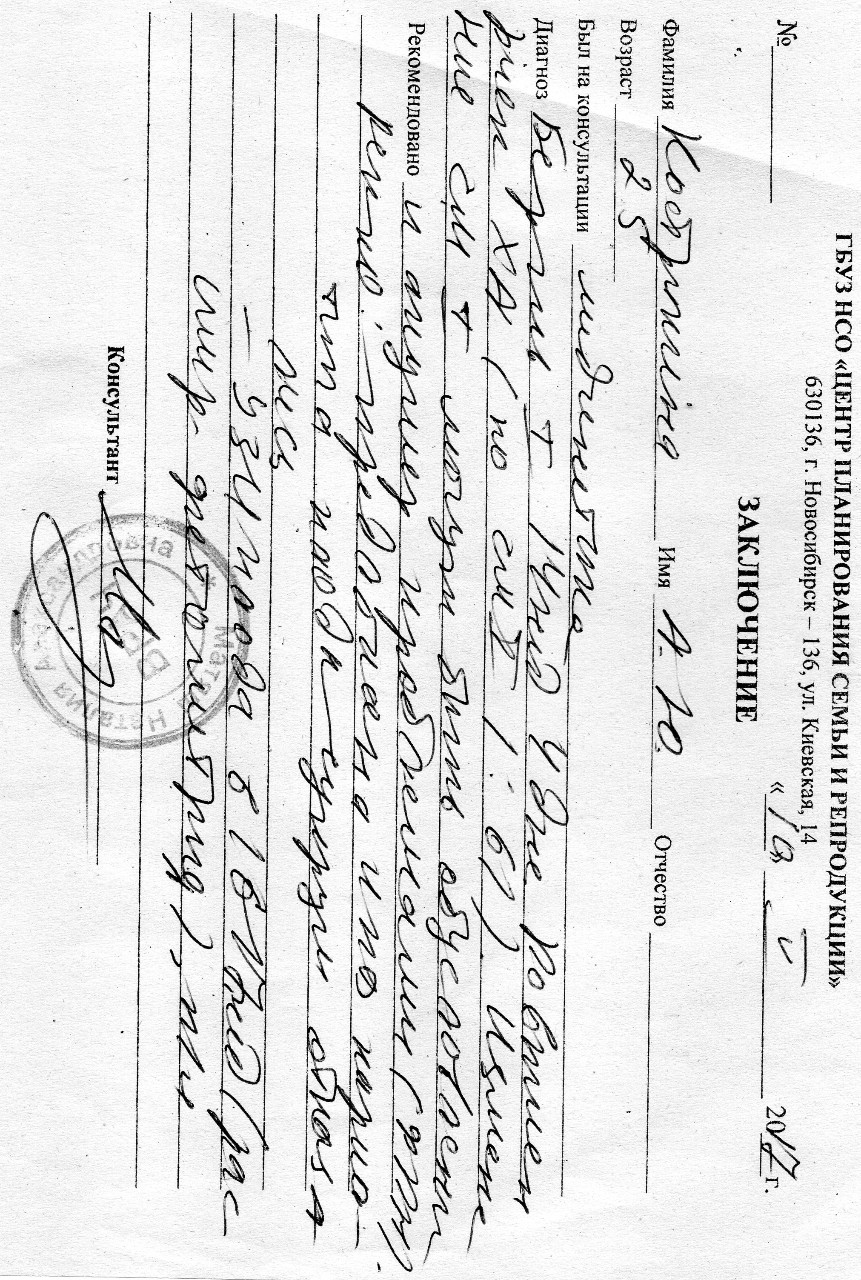 ГБУЗ НСО «ЦЕНТР ПЛАНИРОВАНИЯ СЕМЬИ И РЕПРОДУКЦИИ»
630136, г. Новосибирск – 136, ул. Киевская, 14
№ «10» V 2017 г.
ЗАКЛЮЧЕНИЕ
Фамилия Имя А. Ю. Отчество
Возраст 25
Был на консультации медгенетика
Диагноз I 14 нед 4 дне Повышен
риск ХА (по СМ I 1 : 61). Измене
ние СМ I могут быть обусловлены
Рекомендовано и акушер проблемами (ФПН).
Рекко: предложена ИПД карио-
типа плода супруги отказа
лись
– УЗИ плода в 16-17 нед (рас
шир. фетометрия),
Консультант
Наталия